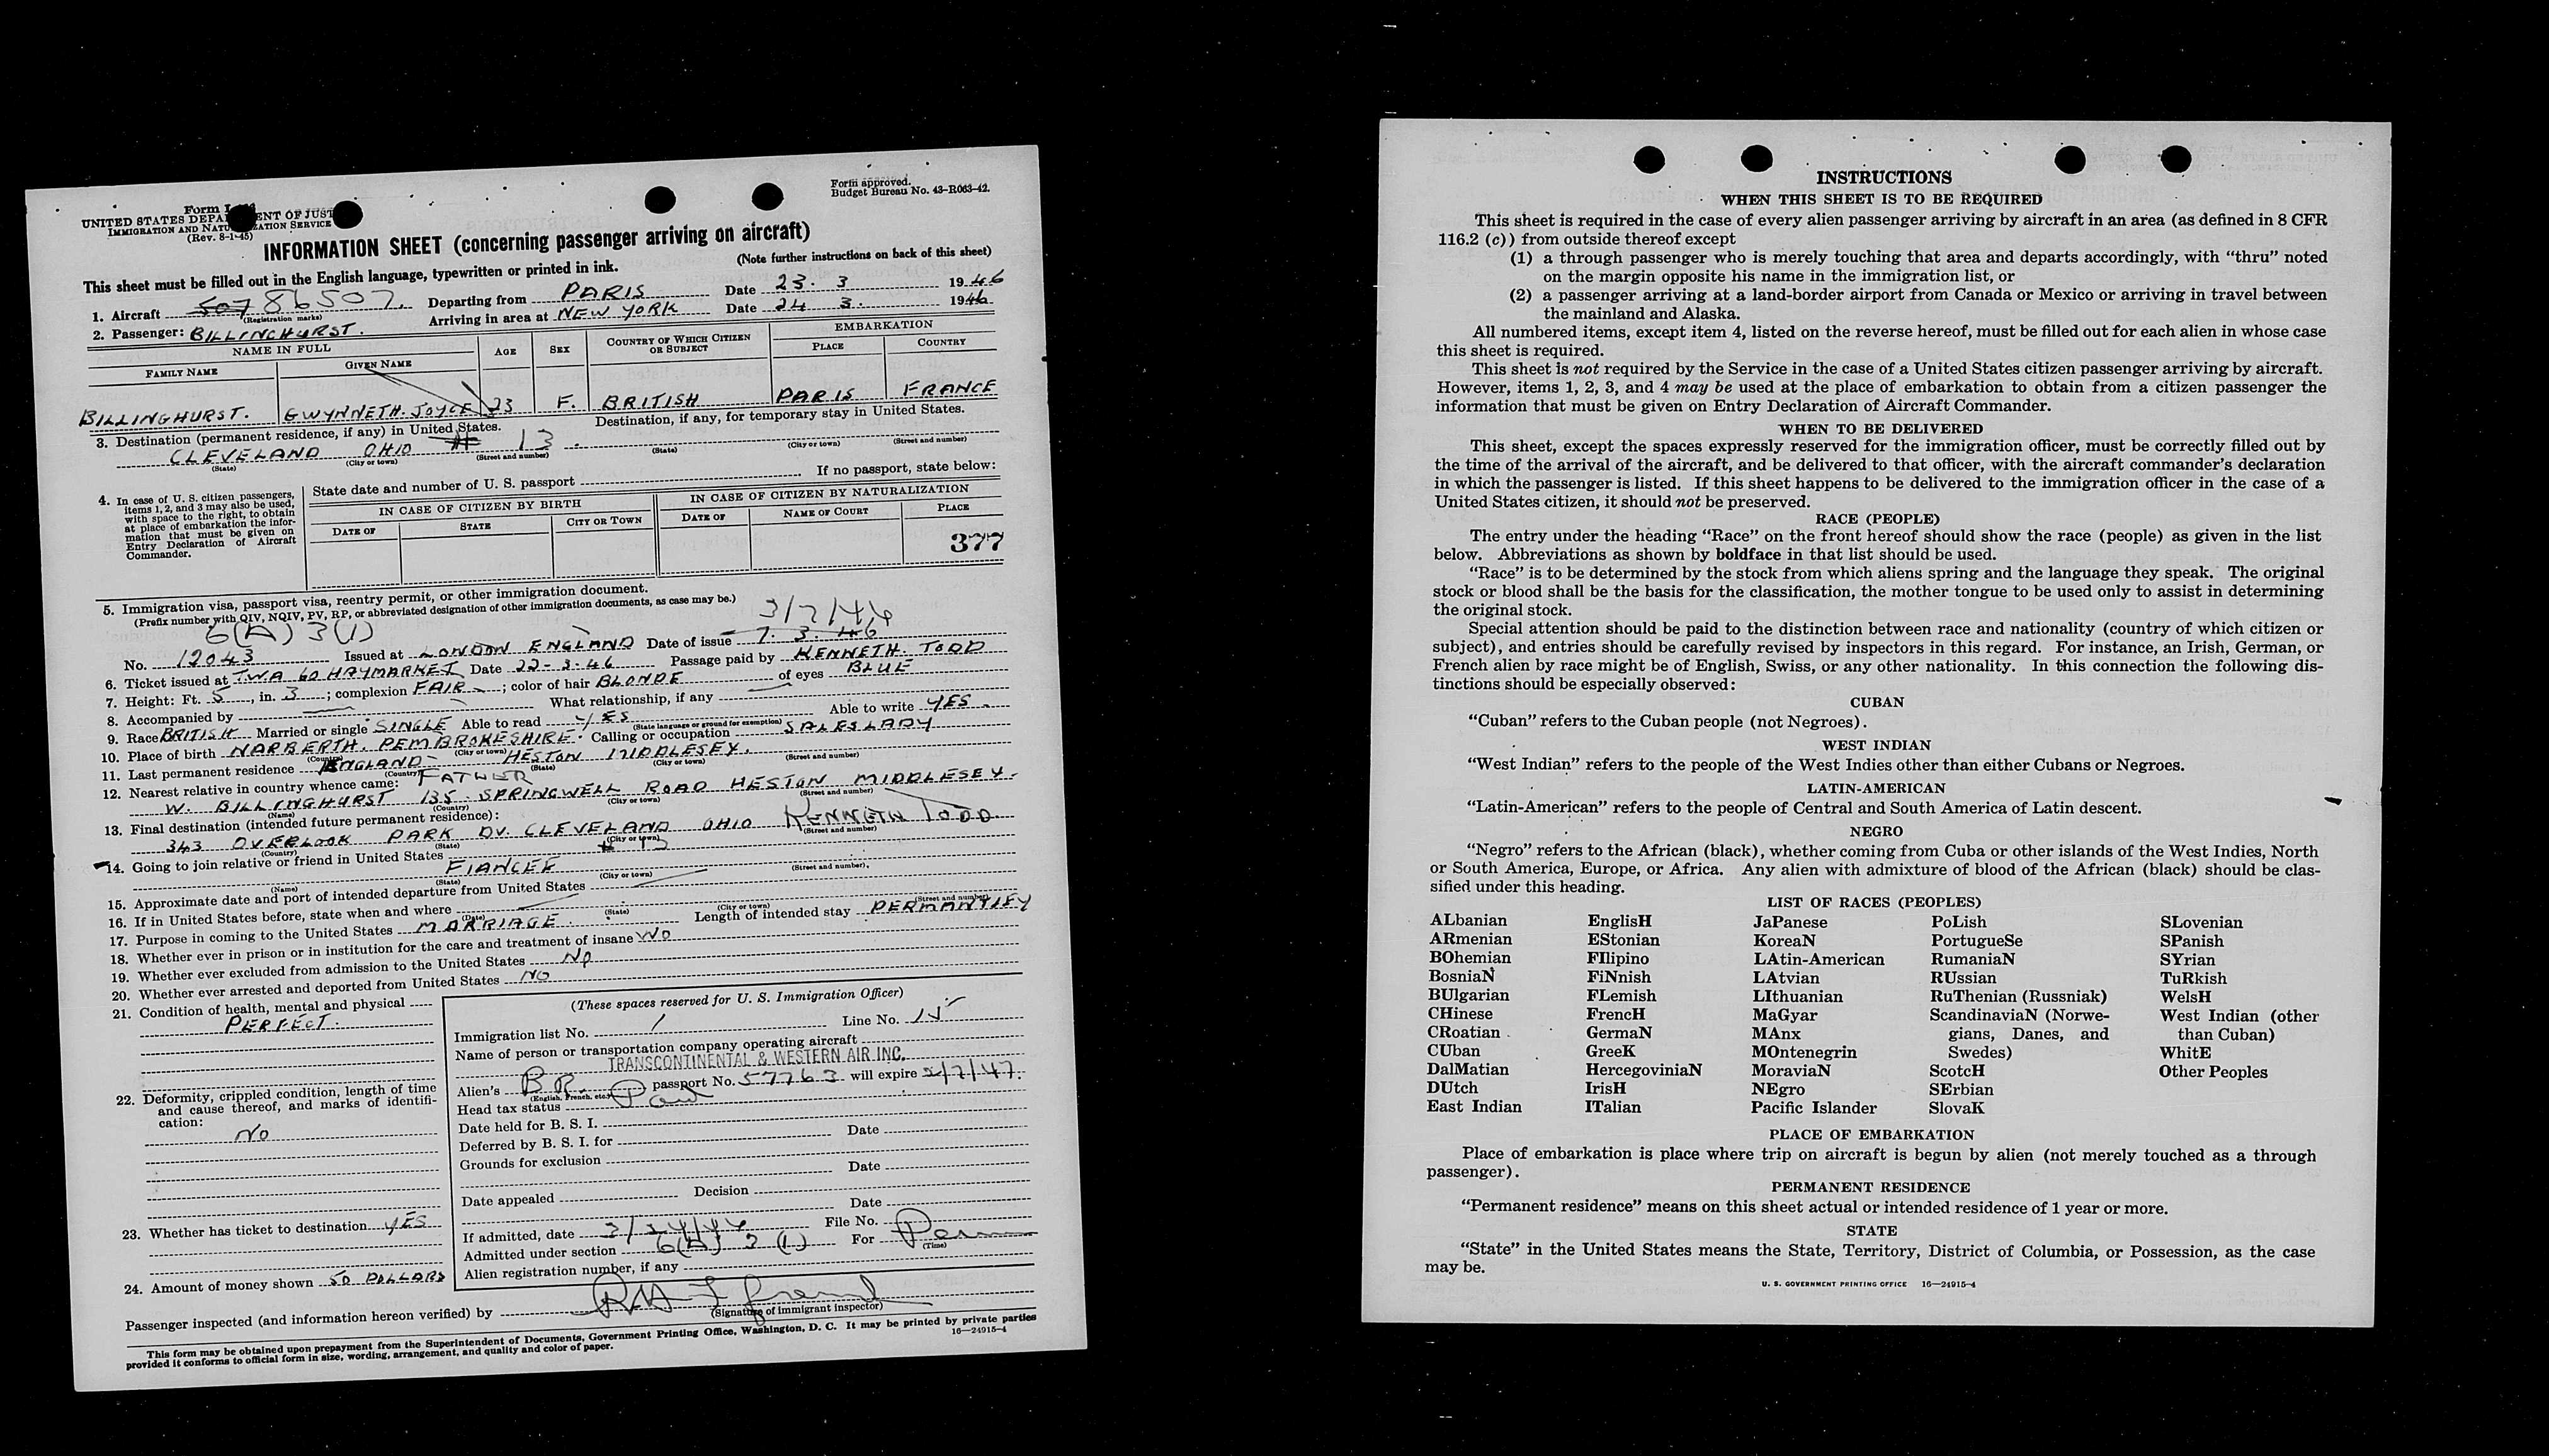 Form approved.
Budget Bureau No. 43-R063-42.
Form I-
UNITED STATES DEPA ENT OF JUST
IMMIGRATION AND NATU ZATION SERVICE
(Rev. 8-1-45)
INFORMATION SHEET (concerning passenger arriving on aircraft)
(Note further instructions on back of this sheet)
This sheet must be filled out in the English language, typewritten or printed in ink.
1. Aircraft 507 86507. Departing from PARIS Date 23. 3 1946
(Registration marks)
Arriving in area at NEW YORK Date 24 3. 1946
2. Passenger: BILLINGHURST.
NAME IN FULL AGE SEX COUNTRY OF WHICH CITIZEN OR SUBJECT EMBARKATION
FAMILY NAME GIVEN NAME PLACE COUNTRY
BILLINGHURST. GWYNNETH. JOYCE 23 F. BRITISH PARIS FRANCE
3. Destination (permanent residence, if any) in United States. Destination, if any, for temporary stay in United States.
CLEVELAND OHIO 13
(State) (City or town) (Street and number) (State) (City or town) (Street and number)
4. In case of U. S. citizen passengers, items 1, 2, and 3 may also be used, with space to the right, to obtain at place of embarkation the information that must be given on Entry Declaration of Aircraft Commander.
State date and number of U. S. passport If no passport, state below:
IN CASE OF CITIZEN BY BIRTH IN CASE OF CITIZEN BY NATURALIZATION
DATE OF STATE CITY OR TOWN DATE OF NAME OF COURT PLACE
377
5. Immigration visa, passport visa, reentry permit, or other immigration document.
(Prefix number with QIV, NQIV, PV, RP, or abbreviated designation of other immigration documents, as case may be.)
6(A) 3(1) 3/7/46
No. 12043 Issued at LONDON ENGLAND Date of issue 7. 3. 46
6. Ticket issued at TWA 60 HAYMARKET Date 22-3-46 Passage paid by KENNETH. TODD
7. Height: Ft. 5, in. 3; complexion FAIR; color of hair BLONDE of eyes BLUE
8. Accompanied by What relationship, if any
9. Race BRITISH Married or single SINGLE Able to read YES Able to write YES
(State language or ground for exemption)
10. Place of birth NARBERTH. PEMBROKESHIRE. Calling or occupation SALESLADY
(Country) (City or town)
11. Last permanent residence ENGLAND HESTON MIDDLESEY.
(Country) (State) (City or town) (Street and number)
12. Nearest relative in country whence came: FATHER
W. BILLINGHURST 135. SPRINGWELL ROAD HESTON MIDDLESEY.
(Name) (Country) (City or town) (Street and number)
13. Final destination (intended future permanent residence):
343 OVERLOOK PARK DV. CLEVELAND OHIO KENNETH TODD
(Country) (State) (City or town) (Street and number)
14. Going to join relative or friend in United States 13
FIANCEE
(Name) (State) (City or town) (Street and number)
15. Approximate date and port of intended departure from United States
16. If in United States before, state when and where
(Date) (State) (City or town) (Street and number)
17. Purpose in coming to the United States MARRIAGE. Length of intended stay PERMANTLEY
18. Whether ever in prison or in institution for the care and treatment of insane NO
19. Whether ever excluded from admission to the United States No
20. Whether ever arrested and deported from United States NO
21. Condition of health, mental and physical
PERFECT.
22. Deformity, crippled condition, length of time and cause thereof, and marks of identification:
No
23. Whether has ticket to destination YES
24. Amount of money shown 50 DOLLARS
(These spaces reserved for U. S. Immigration Officer)
Immigration list No. 1 Line No. 15
Name of person or transportation company operating aircraft
TRANSCONTINENTAL & WESTERN AIR INC.
Alien's BR. passport No. 57763 will expire 2/7/47.
(English, French, etc.)
Head tax status Paid
Date held for B. S. I.
Deferred by B. S. I. for Date
Grounds for exclusion
Date
Date appealed Decision
Date
If admitted, date 3/24/46 File No.
Admitted under section 6(A) 3 (1) For Perm
(Time)
Alien registration number, if any
Passenger inspected (and information hereon verified) by
(Signature of immigrant inspector)
This form may be obtained upon prepayment from the Superintendent of Documents, Government Printing Office, Washington, D. C. It may be printed by private parties
provided it conforms to official form in size, wording, arrangement, and quality and color of paper.
16—24915-4
INSTRUCTIONS
WHEN THIS SHEET IS TO BE REQUIRED
This sheet is required in the case of every alien passenger arriving by aircraft in an area (as defined in 8 CFR
116.2 (c)) from outside thereof except
(1) a through passenger who is merely touching that area and departs accordingly, with "thru" noted
on the margin opposite his name in the immigration list, or
(2) a passenger arriving at a land-border airport from Canada or Mexico or arriving in travel between
the mainland and Alaska.
All numbered items, except item 4, listed on the reverse hereof, must be filled out for each alien in whose case
this sheet is required.
This sheet is not required by the Service in the case of a United States citizen passenger arriving by aircraft.
However, items 1, 2, 3, and 4 may be used at the place of embarkation to obtain from a citizen passenger the
information that must be given on Entry Declaration of Aircraft Commander.
WHEN TO BE DELIVERED
This sheet, except the spaces expressly reserved for the immigration officer, must be correctly filled out by
the time of the arrival of the aircraft, and be delivered to that officer, with the aircraft commander's declaration
in which the passenger is listed. If this sheet happens to be delivered to the immigration officer in the case of a
United States citizen, it should not be preserved.
RACE (PEOPLE)
The entry under the heading "Race" on the front hereof should show the race (people) as given in the list
below. Abbreviations as shown by boldface in that list should be used.
"Race" is to be determined by the stock from which aliens spring and the language they speak. The original
stock or blood shall be the basis for the classification, the mother tongue to be used only to assist in determining
the original stock.
Special attention should be paid to the distinction between race and nationality (country of which citizen or
subject), and entries should be carefully revised by inspectors in this regard. For instance, an Irish, German, or
French alien by race might be of English, Swiss, or any other nationality. In this connection the following dis-
tinctions should be especially observed:
CUBAN
"Cuban" refers to the Cuban people (not Negroes).
WEST INDIAN
"West Indian" refers to the people of the West Indies other than either Cubans or Negroes.
LATIN-AMERICAN
"Latin-American" refers to the people of Central and South America of Latin descent.
NEGRO
"Negro" refers to the African (black), whether coming from Cuba or other islands of the West Indies, North
or South America, Europe, or Africa. Any alien with admixture of blood of the African (black) should be clas-
sified under this heading.
LIST OF RACES (PEOPLES)
ALbanian EnglisH JaPanese PoLish SLovenian
ARmenian EStonian KoreaN PortugueSe SPanish
BOhemian FIlipino LAtin-American RumaniaN SYrian
BosniaN FiNnish LAtvian RUssian TuRkish
BUlgarian FLemish LIthuanian RuThenian (Russniak) WelsH
CHinese FrencH MaGyar ScandinaviaN (Norwe- West Indian (other
CRoatian GermaN MAnx gians, Danes, and than Cuban)
CUban GreeK MOntenegrin Swedes) WhitE
DalMatian HercegoviniaN MoraviaN ScotcH Other Peoples
DUtch IrisH NEgro SErbian
East Indian ITalian Pacific Islander SlovaK
PLACE OF EMBARKATION
Place of embarkation is place where trip on aircraft is begun by alien (not merely touched as a through
passenger).
PERMANENT RESIDENCE
"Permanent residence" means on this sheet actual or intended residence of 1 year or more.
STATE
"State" in the United States means the State, Territory, District of Columbia, or Possession, as the case
may be.
U. S. GOVERNMENT PRINTING OFFICE 16—24915-4